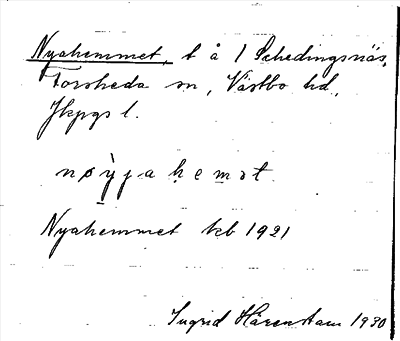 Nyahemmet, t å 1 Schedingsnäs,
Forsheda sn, Västbo hd,
Jkpgs l.
nøy̨jahemət
Nyahemmet kb 1921
Ingrid Härenstam 1930